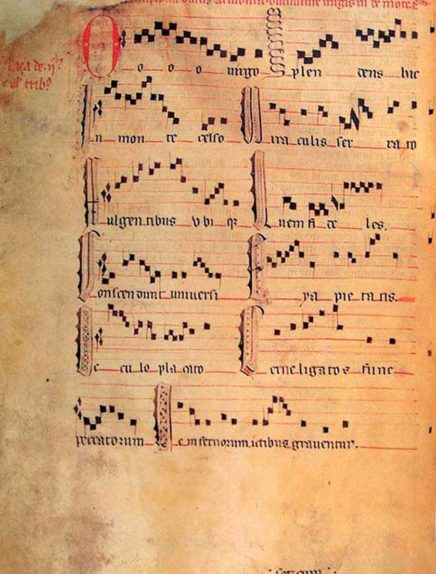 Caça de
O o o o uirgo plen dens hic
n mon te celso ira culis ser ra to
ulgentibus vbi q3 uem fi de les.
onscendunt uniuersi ya pie ta tis
e cu lo pla cato erne ligatos fune
peccatorum e infernorum ictibus grauentur.